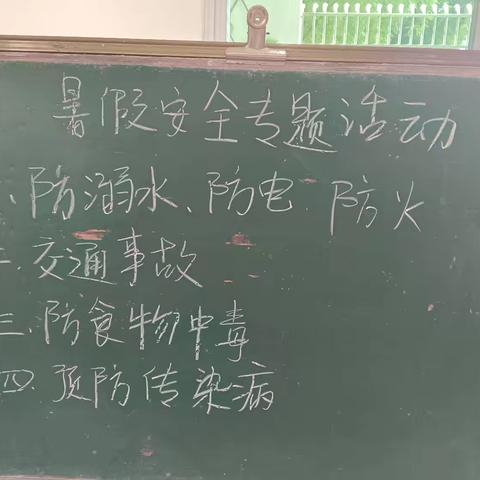 暑假安全专题活动
、防溺水、防电、防火
二、交通事故
三、防食物中毒
四、预防传染病